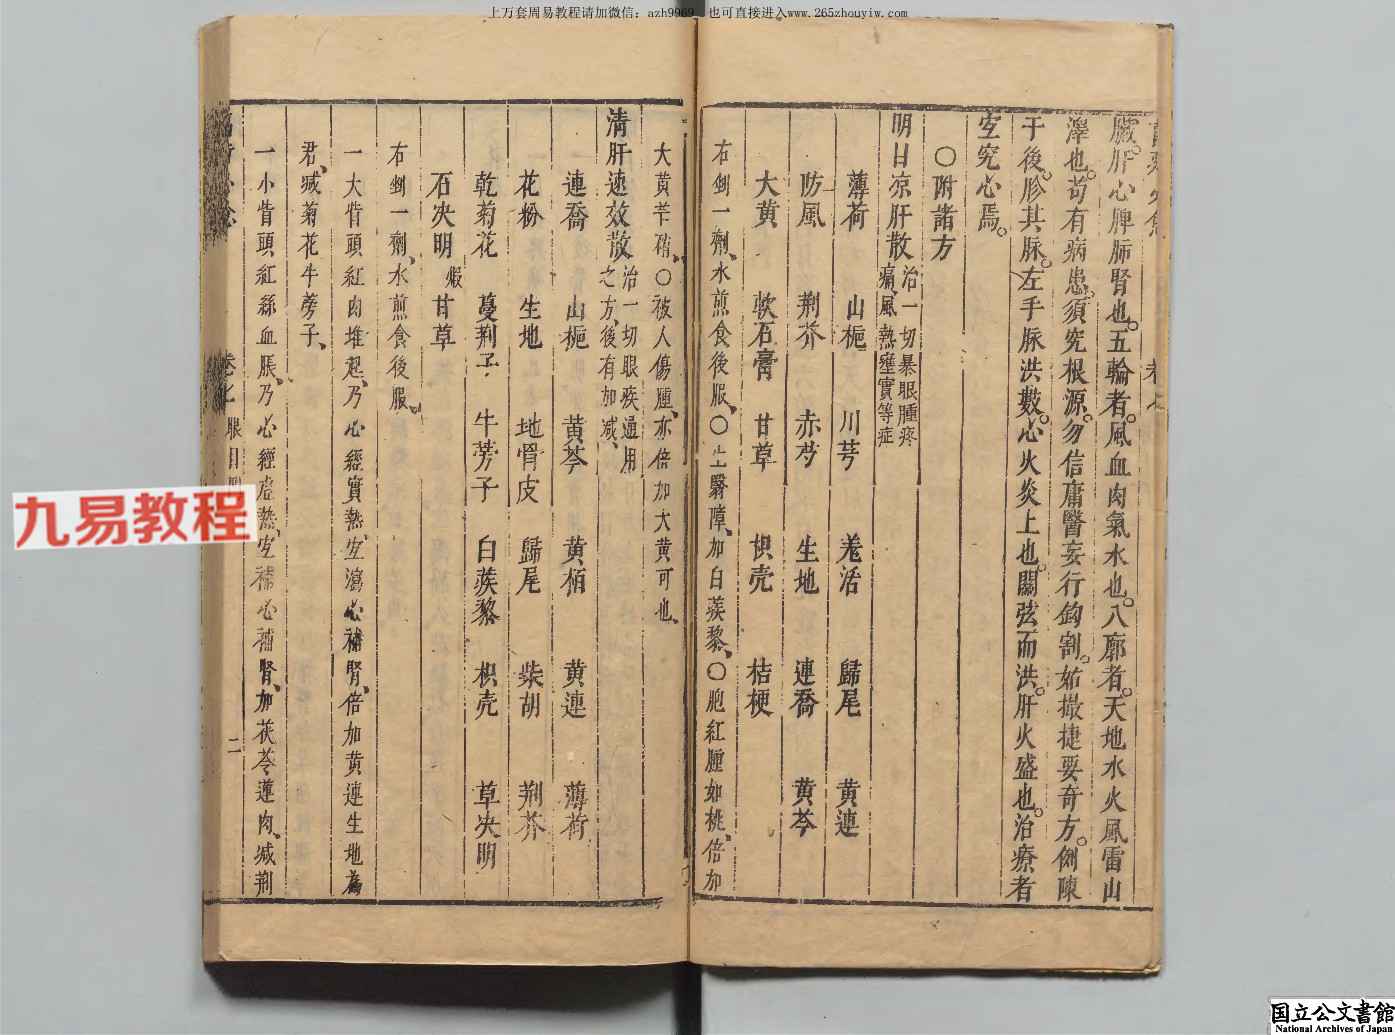 上万套周易教程请加微信：azh9969，也可直接进入www.265zhouyiw.com
臟肝心脾肺腎也。五輪者。風血肉氣水也。八廓者。天地水火風雷山
澤也。苟有病患。須究根源。勿信庸醫妄行鈎割。姑撮捷要奇方。例陳
于後。胗其脉。左手脉洪數。心火炎上也。關弦而洪。肝火盛也。治療者
宜究心焉。
○附諸方
明目凉肝散 治一切暴眼腫疼
痛風熱壅實等症
薄荷 山梔 川芎 羗活 歸尾 黄連
防風 荆芥 赤芍 生地 連喬 黄芩
大黄 軟石膏 甘草 枳壳 桔梗
右剉一劑、水煎食後服、○上翳障、加白蒺藜、○胞紅腫如桃、倍加
大黄芒硝、○被人傷腫、亦倍加大黄可也、
清肝速效散 治一切眼疾通用
之方、後有加减、
連喬 山梔 黄芩 黄栢 黄連 薄荷
花粉 生地 地骨皮 歸尾 柴胡 荆芥
乾菊花 蔓荆子 牛蒡子 白蒺藜 枳壳 草决明
石决明煅 甘草
右剉一劑、水煎食後服。
一大眥頭紅肉堆起、乃心經實熱、宜瀉心補腎、倍加黄連生地為
君、减菊花牛蒡子、
一小眥頭紅絲血脹、乃心經虚熱、宜補心補腎、加茯苓蓮肉、减荆
卷七 眼目 二
九易教程
国立公文書館
National Archives of Japan